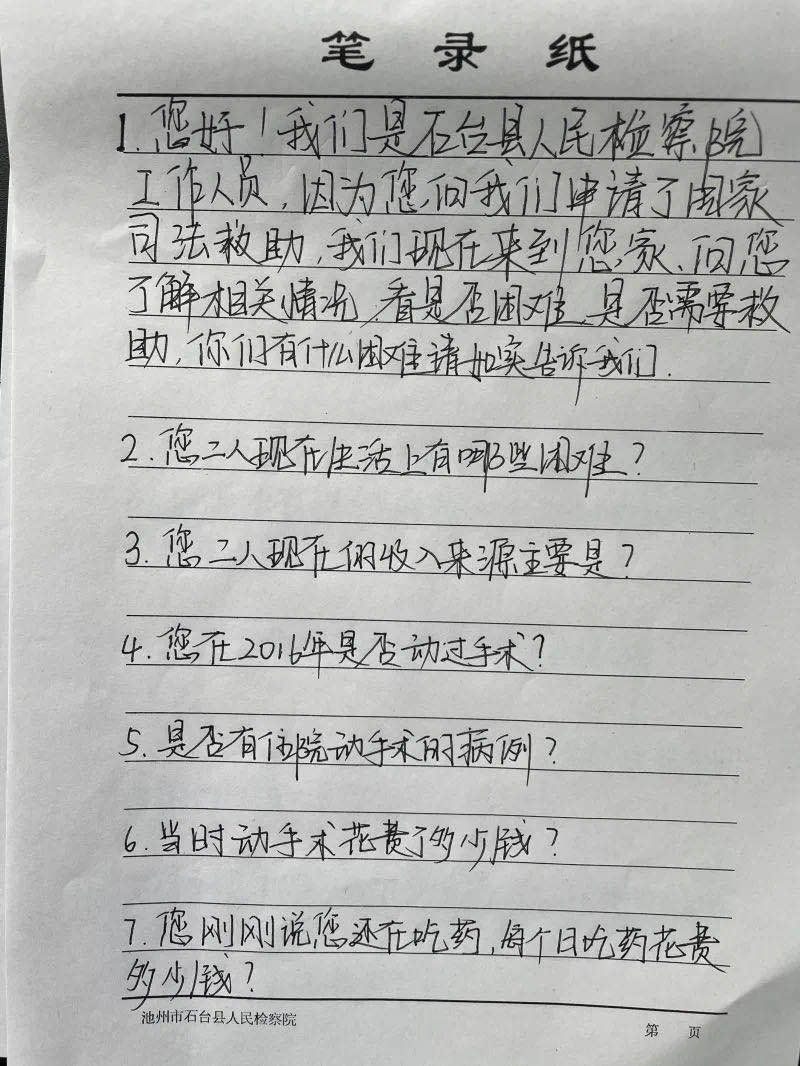 笔录纸
1.您好！我们是石台县人民检察院
工作人员，因为您向我们申请了国家
司法救助，我们现在来到您家、向您
了解相关情况，看是否困难，是否需要救
助，你们有什么困难请如实告诉我们.
2.您二人现在生活上有哪些困难？
3.您二人现在的收入来源主要是？
4.您在2016年是否动过手术？
5.是否有住院动手术的病例？
6.当时动手术花费了多少钱？
7.您刚刚说您还在吃药，每个月吃药花费
多少钱？
池州市石台县人民检察院
第 页